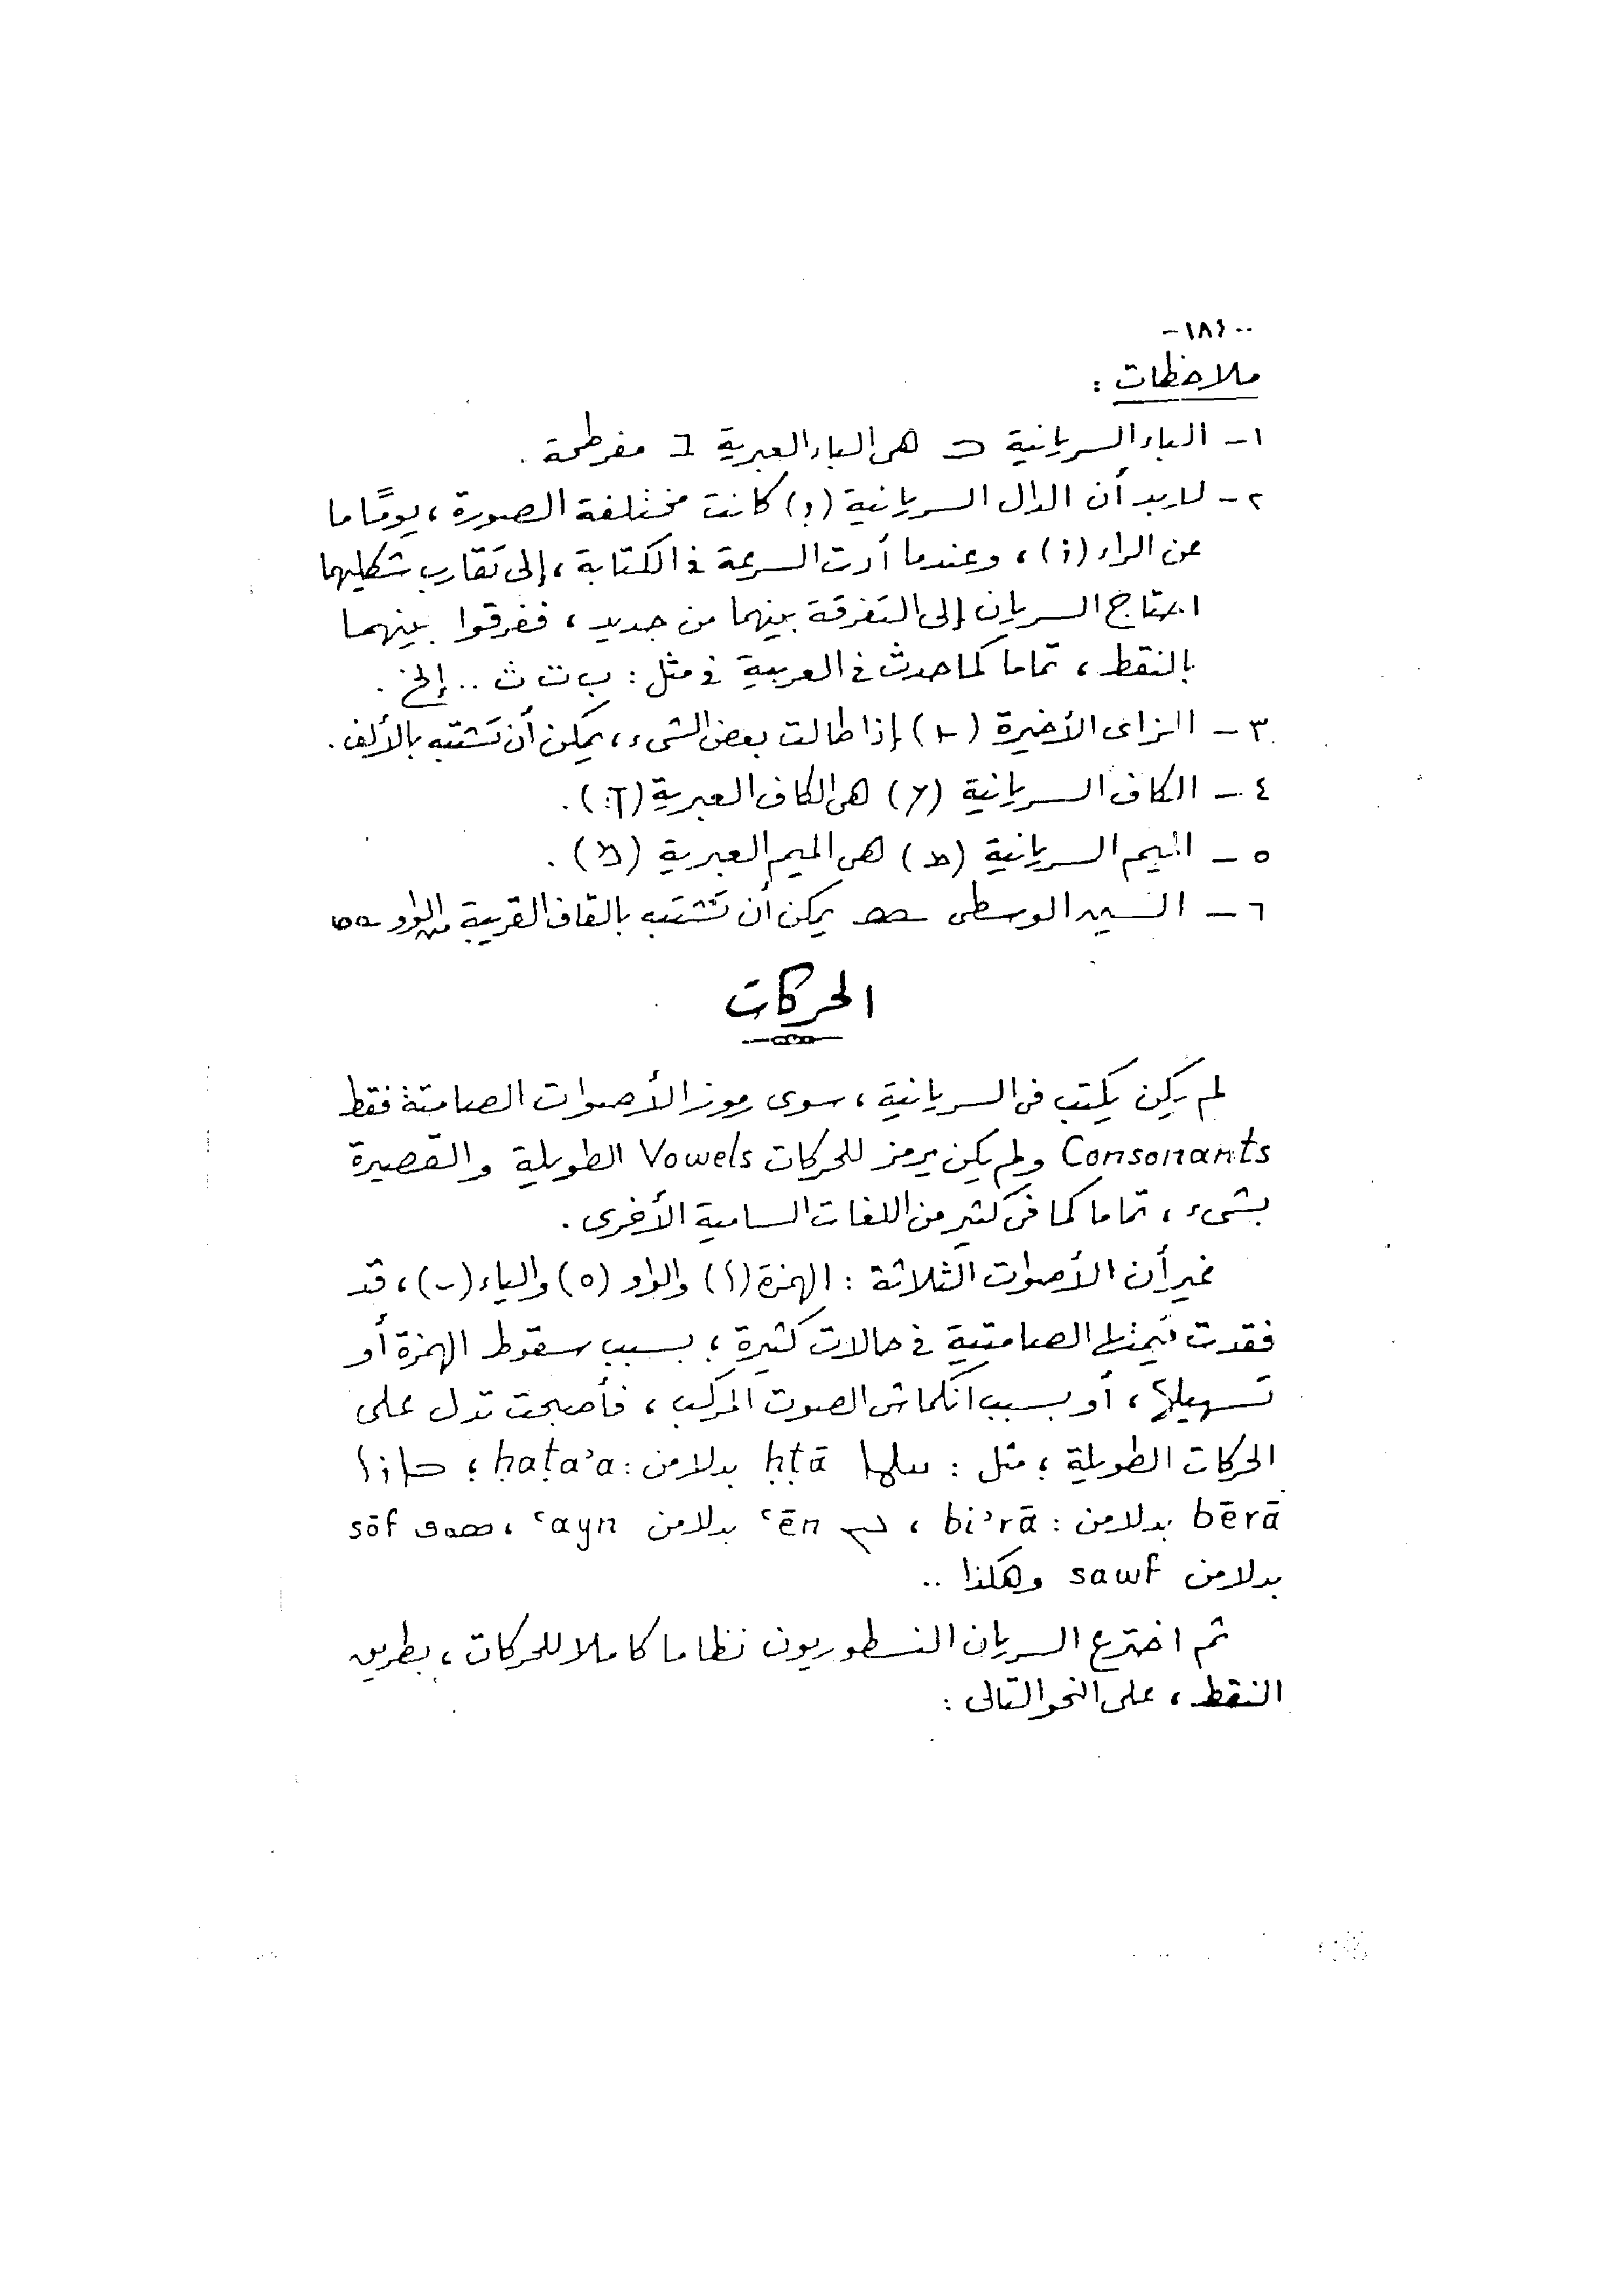 -١٨٤-
ملاحظات :
١- الباء السريانية ܒ هى الباء العبرية ב مفرطحة .
٢- لابد أن الدال السريانية (ܕ) كانت مختلفة الصورة ، يومًا ما
عن الراء (ܪ) ، وعندما أدت السرعة فى الكتابة ، إلى تقارب شكليهما
احتاج السريان إلى التفرقة بينهما من جديد ، ففرقوا بينهما
بالنقط ، تماما كما حدث فى العربية فى مثل : ب ت ث .. إلخ .
٣- الزاى الأخيرة () إذا طالت بعض الشىء ، يمكن أن تشتبه بالألف .
٤- الكاف السريانية (ܟ) هى الكاف العبرية (ך) .
٥- الميم السريانية (ܡ) هى الميم العبرية (מ) .
٦- السين الوسطى ܣ يمكن أن تشتبه بالقاف القريبة من الواو ܩܘ
الحركات
لم يكن يكتب فى السريانية ، سوى رموز الأصوات الصامتة فقط
Consonants ولم يكن يرمز للحركات Vowels الطويلة والقصيرة
بشىء ، تماما كما فى كثير من اللغات السامية الأخرى .
غير أن الأصوات الثلاثة : الهمزة (ܐ) والواو (ܘ) والياء (ܝ) ، قد
فقدت قيمتها الصامتية فى حالات كثيرة ؛ بسبب سقوط الهمزة أو
تسهيلها ، أو بسبب انكماش الصوت المركب ، فأصبحت تدل على
الحركات الطويلة ؛ مثل : ܚܛܐ ḥṭā بدلا من : ḥaṭa’a ؛ ܒܐܪܐ
bērā بدلا من : bi’rā ، ܥܝܢ ‘ēn بدلا من ‘ayn ، ܣܘܦ sōf
بدلا من sawf وهكذا ..
ثم اخترع السريان النسطوريون نظاما كاملا للحركات ، بطريق
النقط ، على النحو التالى :